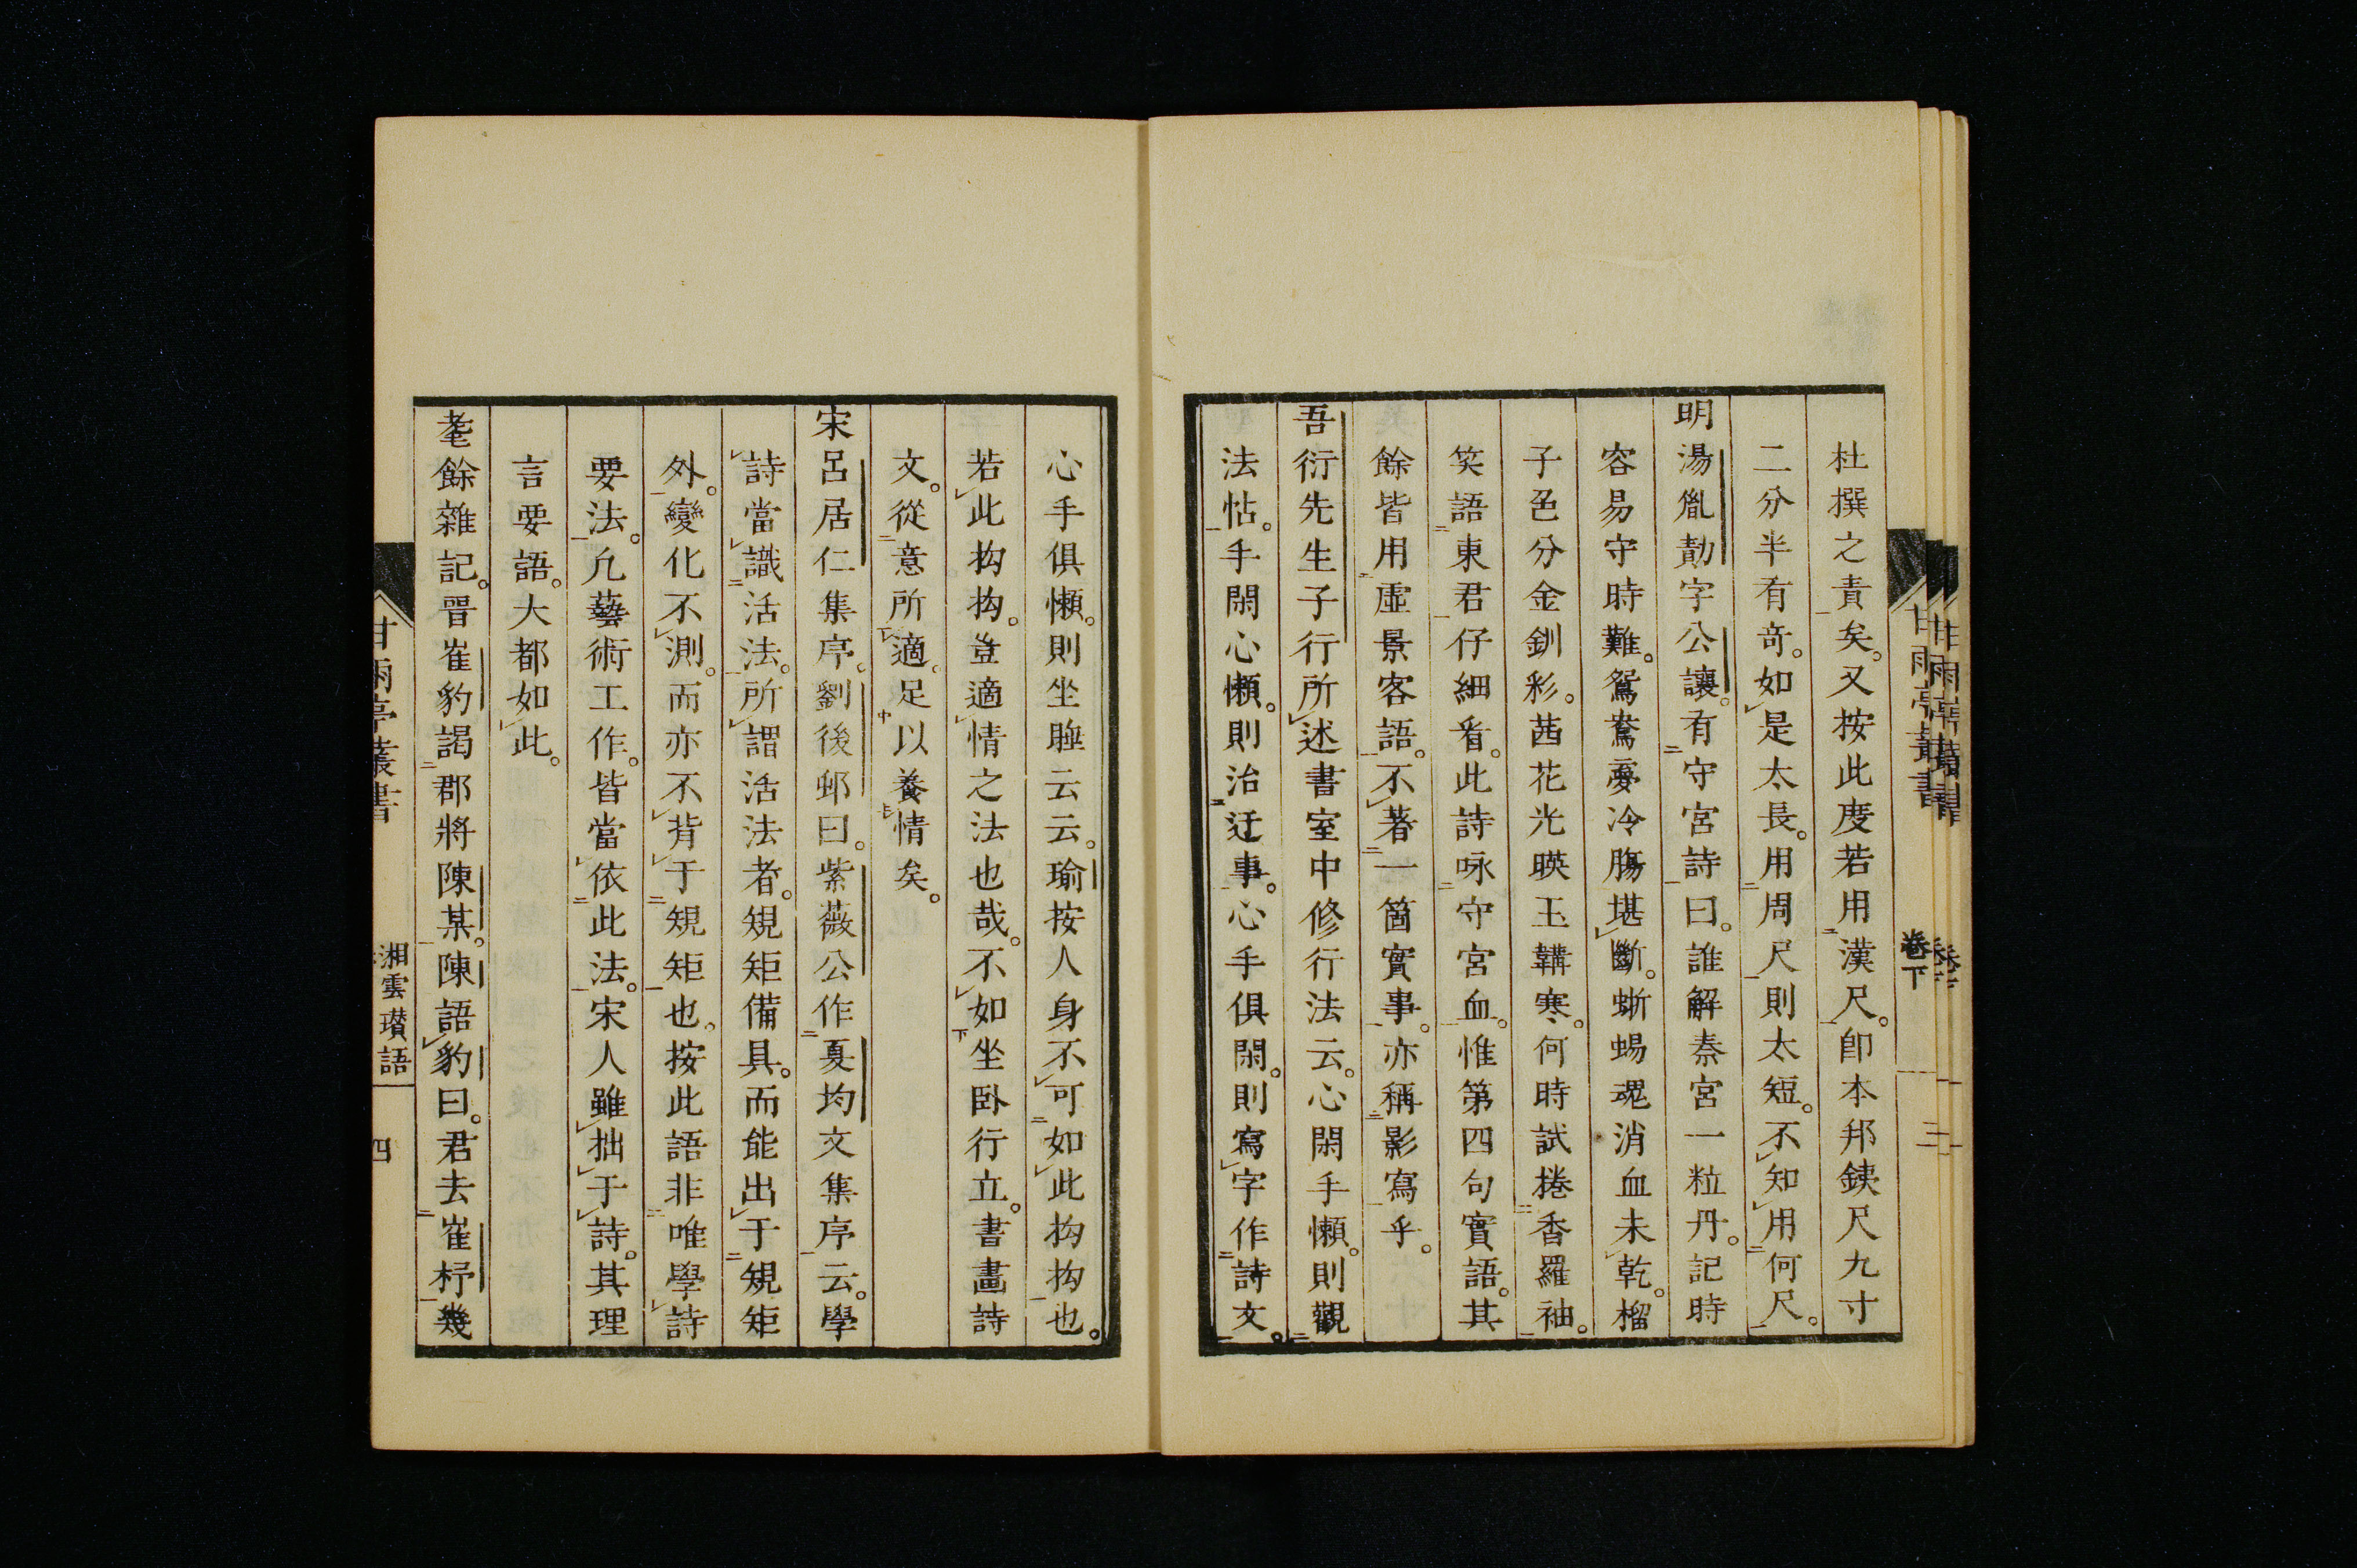 杜撰之責矣。又按此度若用漢尺。卽本邦鐵尺九寸
二分半有奇。如是太長。用周尺則太短。不知用何尺。
明湯胤勣字公讓。有守宮詩曰。誰解秦宮一粒丹。記時
容易守時難。鴛鴦夢冷膓堪斷。蜥蜴魂消血未乾。榴
子色分金釧彩。茜花光暎玉韝寒。何時試捲香羅袖。
笑語東君仔細看。此詩咏守宮血。惟第四句實語。其
餘皆用虛景客語。不著一箇實事。亦稱影寫乎。
吾衍先生子行所述書室中修行法云。心閑手懶。則觀
法帖。手閑心懶。則治迂事。心手俱閑。則寫字作詩文。
心手俱懶。則坐睡云云。瑜按人身不可如此拘拘也。
若此拘拘。豈適情之法也哉。不如坐臥行立。書畫詩
文。從意所適。足以養情矣。
宋呂居仁集序。劉後邨曰。紫薇公作夏均文集序云。學
詩當識活法。所謂活法者。規矩備具。而能出于規矩
外。變化不測。而亦不背于規矩也。按此語非唯學詩
要法。凢藝術工作。皆當依此法。宋人雖拙于詩。其理
言要語。大都如此。
耄餘雜記。晋崔豹謁郡將陳某。陳語豹曰。君去崔杼幾
甘雨亭叢書 湘雲瓚語 四
甘雨亭叢書 卷下